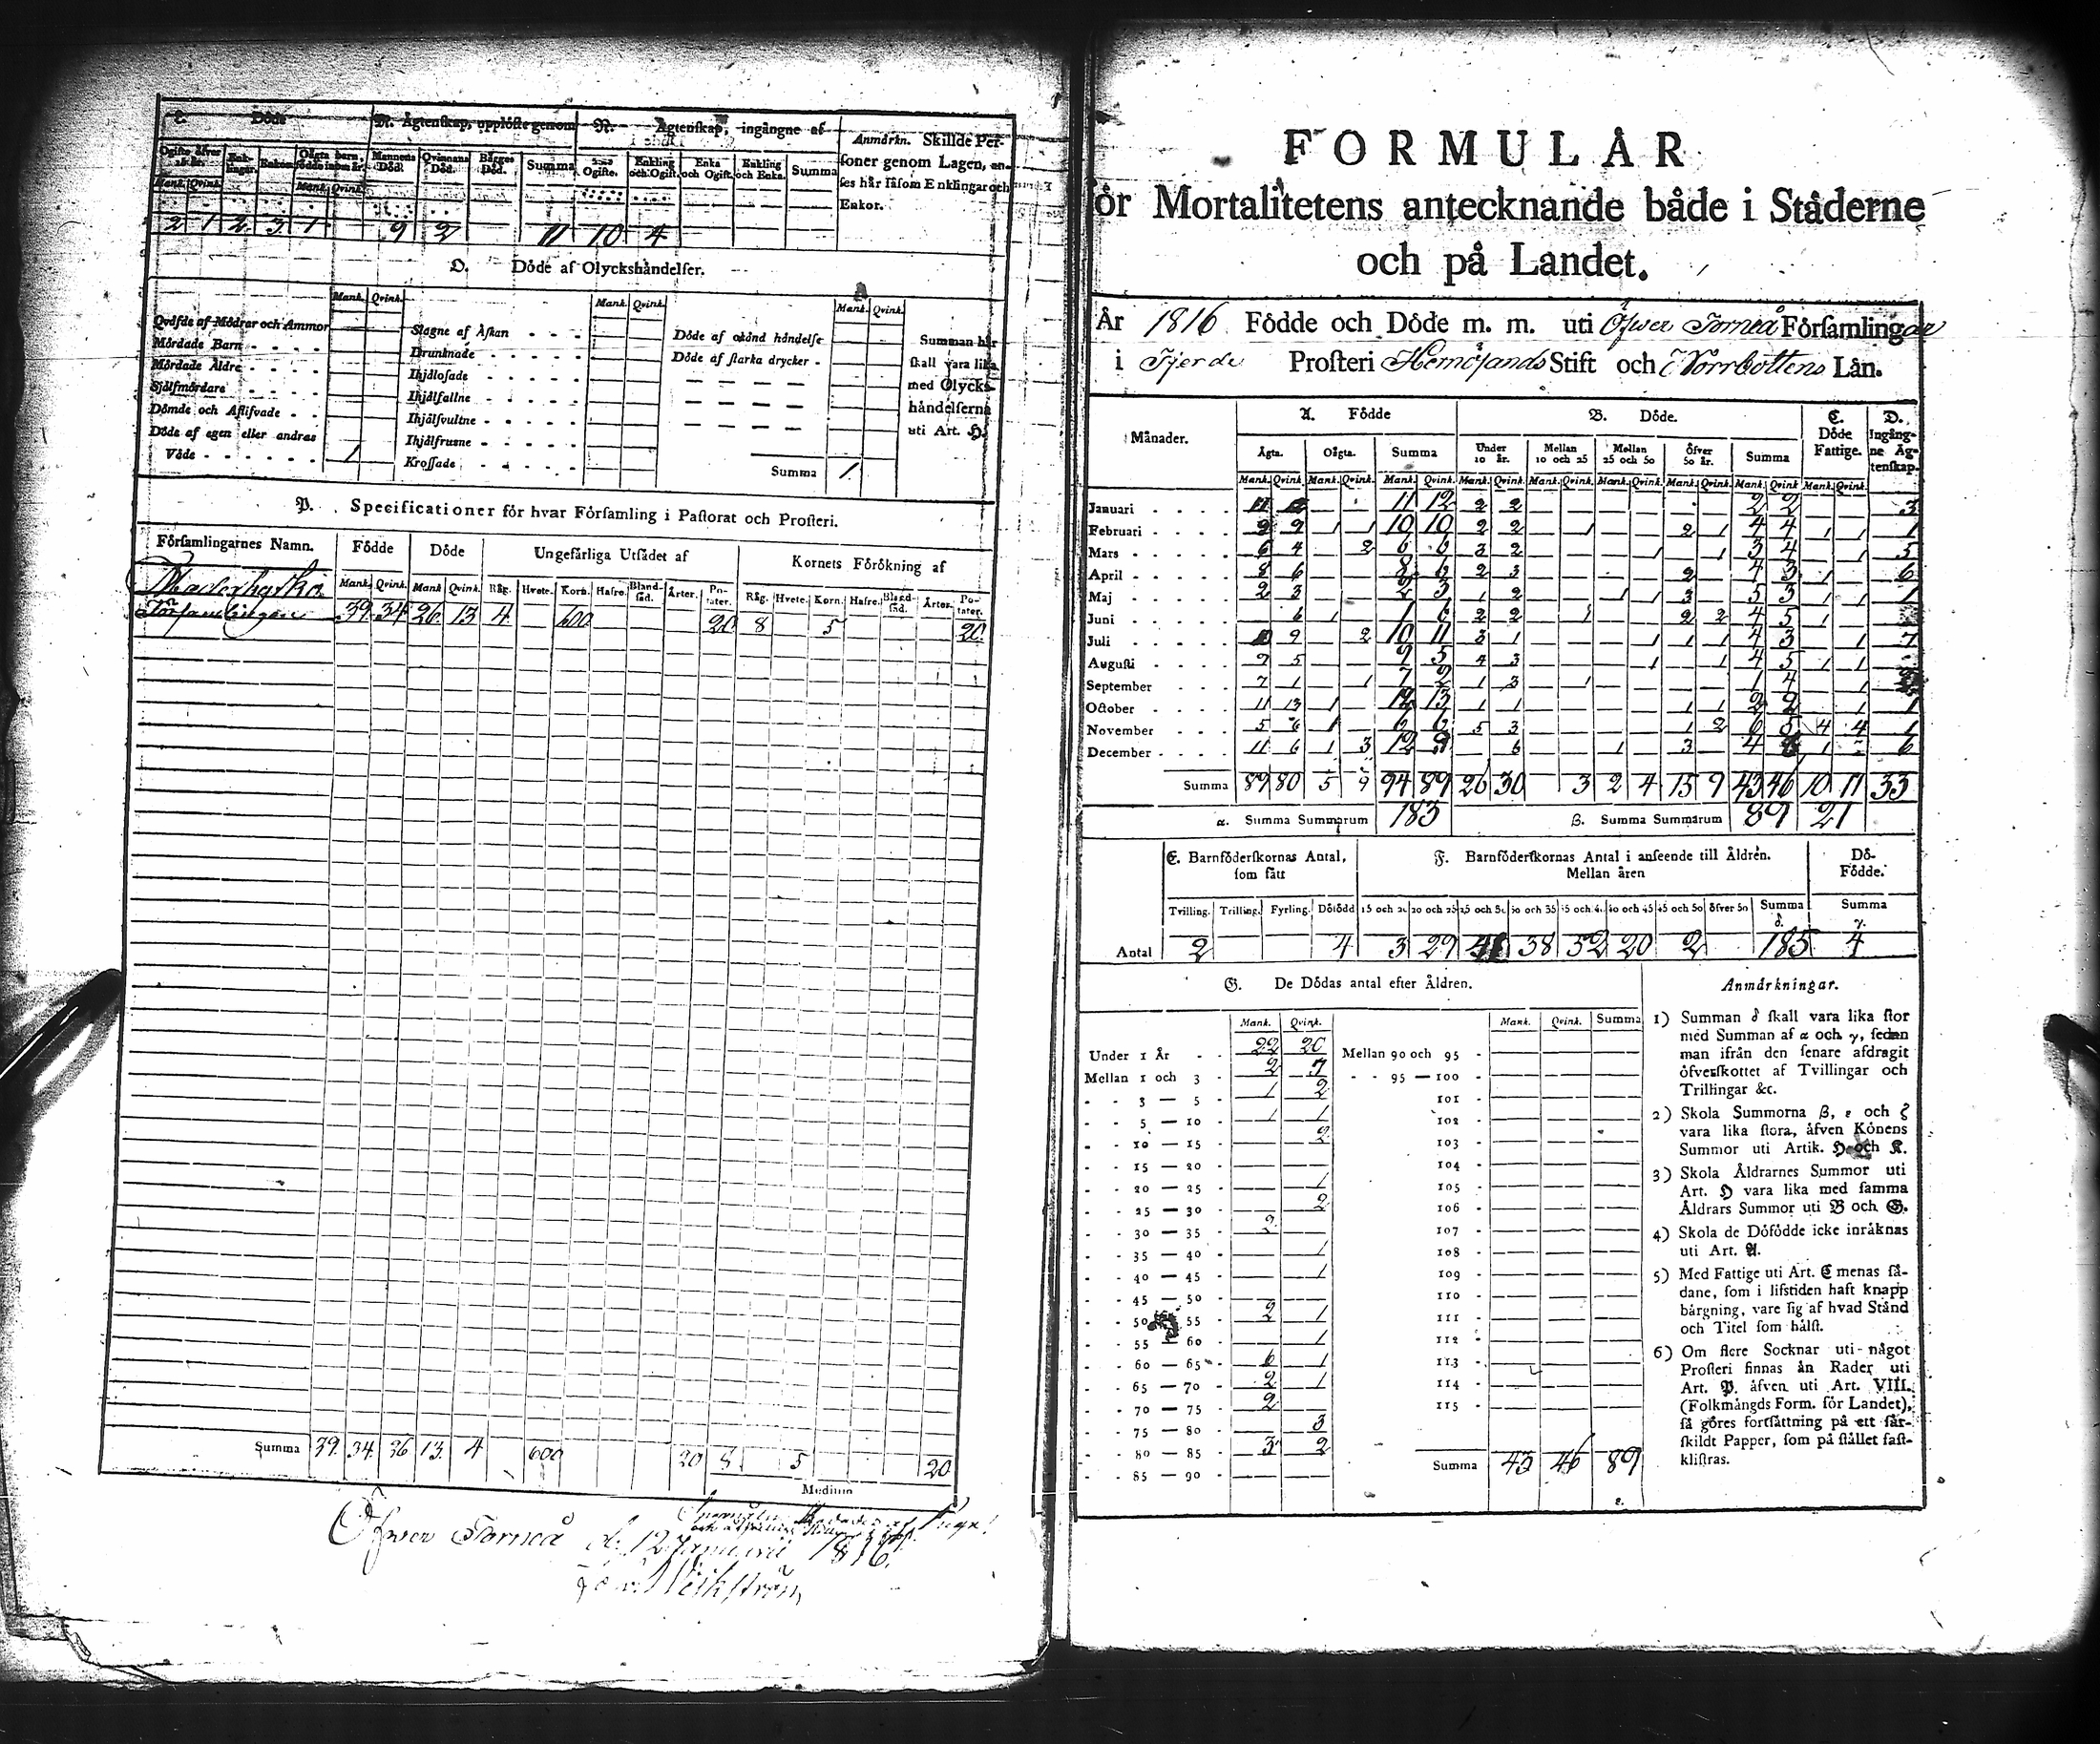 L. Döde
M. Ägtenskap, upplöste genom
N. Ägtenskap, ingångne af
Anmärkn. Skillde Personer genom Lagen, anses här såsom Enklingar och Enkor.
Ogifte öfver 15 år. Enklingar. Enkor. Oägta barn, födde inom år. Mannens Död. Qvinnans Död. Bägges Död. Summa Ogifte. Enkling och Ogift. Enka och Ogift. Enkling och Enka. Summa
Mank. Qvink. Mank. Qvink.
2 1 2 3 1 9 2 11 10 4
O. Döde af Olyckshändelser.
Mank. Qvink. Mank. Qvink. Mank. Qvink.
Qväfde af Mödrar och Ammor
Mördade Barn
Mördade Äldre
Självmördare
Dömde och Aflifvade
Döde af egen eller andras
Våde 1
Slagne af Åskan
Drunknade
Ihjälosade
Ihjälfallne
Ihjälsvultne
Ihjälfrusne
Krossade
Döde af okänd händelse
Döde af starka drycker
Summa 1.
Summan här
skall vara lika
med Olycks-
händelserna
uti Art. H.
P. Specificationer för hvar Församling i Pastorat och Prosteri.
Församlingarnes Namn. Födde Döde Ungefärliga Utsädet af Kornets Förökning af
Mank. Qvink. Mank. Qvink. Råg. Hvete. Korn. Hafre. Blandsäd. Ärter. Potater. Råg. Hvete. Korn. Hafre. Blandsäd. Ärter. Potater.
församlingen 39. 34 26 13 4 600 20 8 5 20.
Summa 39. 34. 26 13. 4 600 20 8 5 20
Medium
Öfwer Torneå d. 12 Januarii 1816.
FORMULÄR
för Mortalitetens antecknande både i Städerne
och på Landet.
År 1816 Födde och Döde m. m. uti Öfwer Torneå Församlingar
i Fjerde Prosteri Hernösands Stift och i Norrbottens Län.
Månader. A. Födde B. Döde. C. Döde Fattige. D. Ingångne Ägtenskap.
Ägta. Oägta. Summa Under 10 år. Mellan 10 och 25 Mellan 25 och 50 Öfver 50 år. Summa
Mank. Qvink. Mank. Qvink. Mank. Qvink. Mank. Qvink. Mank. Qvink. Mank. Qvink. Mank. Qvink. Mank. Qvink. Mank. Qvink.
Januari 11 12 11 12 2 2 2 2 3
Februari 9 9 1 1 10 10 2 2 1 2 1 4 4 1 1 1
Mars 6 4 2 6 6 3 2 1 1 3 4 1 5
April 8 6 8 6 2 3 2 4 3 1 6
Maj 2 3 2 3 1 2 1 1 3 5 3 1 1 1
Juni 6 1 1 6 2 2 1 2 2 4 5 1
Juli 10 9 2 10 11 3 1 1 1 1 4 3 1 7
Augusti 9 5 9 5 4 3 1 1 4 5 1 1
September 7 1 1 7 2 1 3 1 1 4 1
October 11 13 1 12 13 1 1 1 1 2 2 1 1
November 5 6 1 6 6 5 3 1 2 6 5 4 4 1
December 11 6 1 3 12 9 6 1 3 4 6 1 6
Summa 89 80 5 9 94 89 26 30 3 2 4 15 9 43 46 10 11 33
α. Summa Summarum 183 β. Summa Summarum 89 21
E. Barnföderskornas Antal, som fått
F. Barnföderskornas Antal i anseende till Åldren. Mellan åren
Dö-Födde.
Tvilling. Trilling. Fyrling. Dödfödd 15 och 20 20 och 25 25 och 30 30 och 35 35 och 40 40 och 45 45 och 50 öfver 50 Summa δ. Summa γ.
Antal 2 4 3 29 41 38 52 20 2 185 4
G. De Dödas antal efter Åldren.
Mank. Qvink. Mank. Qvink. Summa
Under 1 År 22 20
Mellan 1 och 3 2 7
3 — 5 1 2
5 — 10 1 1
10 — 15 2
15 — 20
20 — 25 1
25 — 30 2
30 — 35 2
35 — 40 1
40 — 45 1
45 — 50
50 55 2 1
55 — 60 1
60 — 65 6 1
65 — 70 2 1
70 — 75 2
75 — 80 3
80 — 85 3 2
85 — 90
Mellan 90 och 95
95 — 100
101
102
103
104
105
106
107
108
109
110
111
112
113
114
115
Summa 43 46 89
ε.
Anmärkningar.
1) Summan δ skall vara lika stor
med Summan af α och γ, sedan
man ifrån den senare afdragit
öfverskottet af Tvillingar och
Trillingar &c.
2) Skola Summorna β, ε och ζ
vara lika stora, äfven Könens
Summor uti Artik. H och K.
3) Skola Åldrarnes Summor uti
Art. H vara lika med samma
Åldrars Summor uti B och G.
4) Skola de Döfödde icke inräknas
uti Art. A.
5) Med Fattige uti Art. C menas så-
dane, som i lifstiden haft knapp
bärgning, vare sig af hvad Stånd
och Titel som hälst.
6) Om flere Socknar uti något
Prosteri finnas än Rader uti
Art. P. äfven uti Art. VIII.
(Folkmängds Form. för Landet),
så göres fortsättning på ett sär-
skildt Papper, som på stället fast-
klistras.